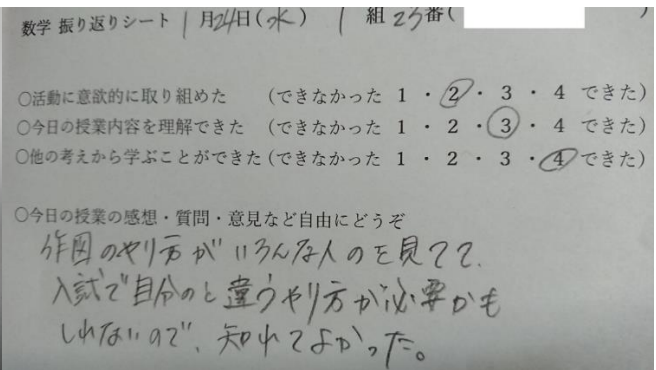 数学 振り返りシート 1月24日(水) 1 組 23番( )
○活動に意欲的に取り組めた (できなかった 1 ・ 2 ・ 3 ・ 4 できた)
○今日の授業内容を理解できた (できなかった 1 ・ 2 ・ 3 ・ 4 できた)
○他の考えから学ぶことができた(できなかった 1 ・ 2 ・ 3 ・ 4 できた)
○今日の授業の感想・質問・意見など自由にどうぞ
作図のやり方がいろんな人のを見てて、
入試で自分のと違うやり方が必要かも
しれないので、知れてよかった。